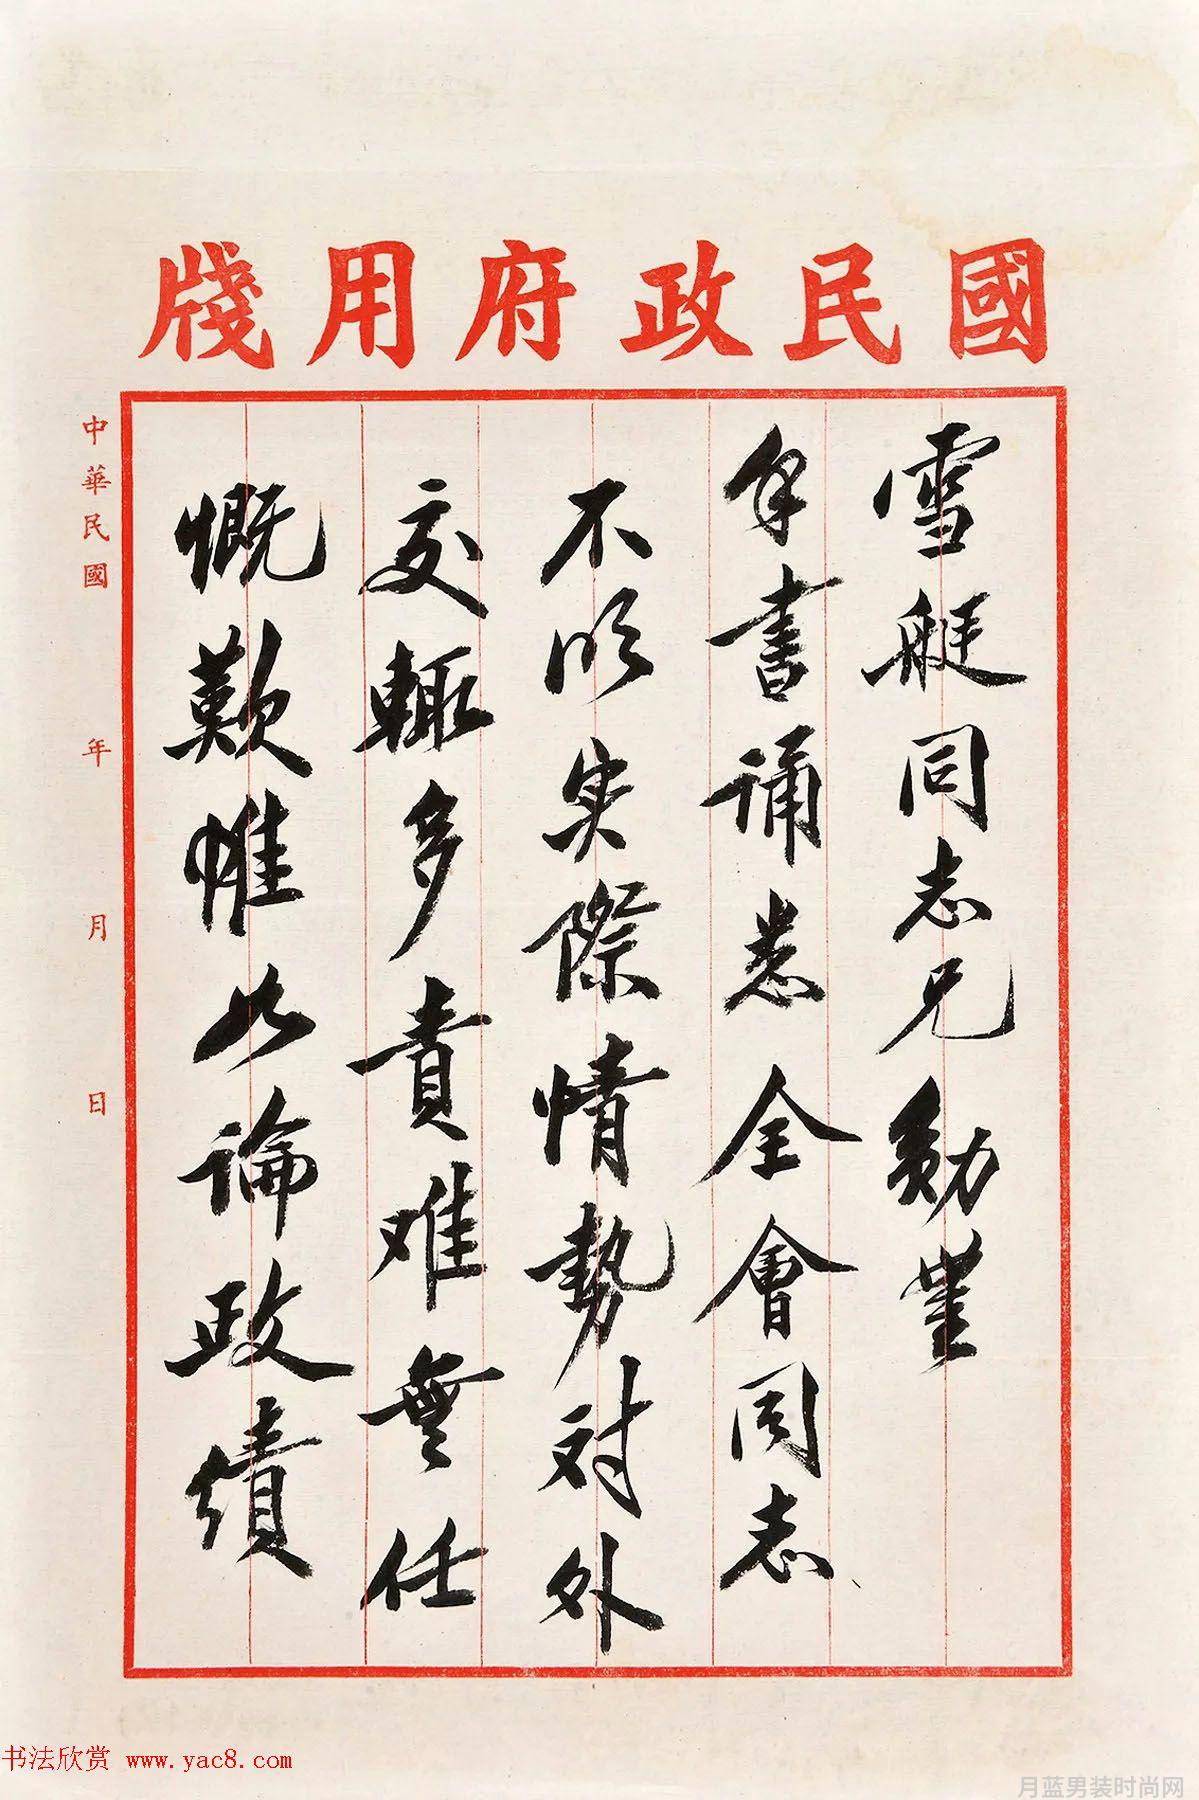 國民政府用牋
雪艇同志兄勛鑒
手書誦悉全會同志
不明实際情勢对外
交輙多責难無任
慨歎惟如論政績
中華民國 年 月 日
书法欣赏 www.yac8.com
月蓝男装时尚网